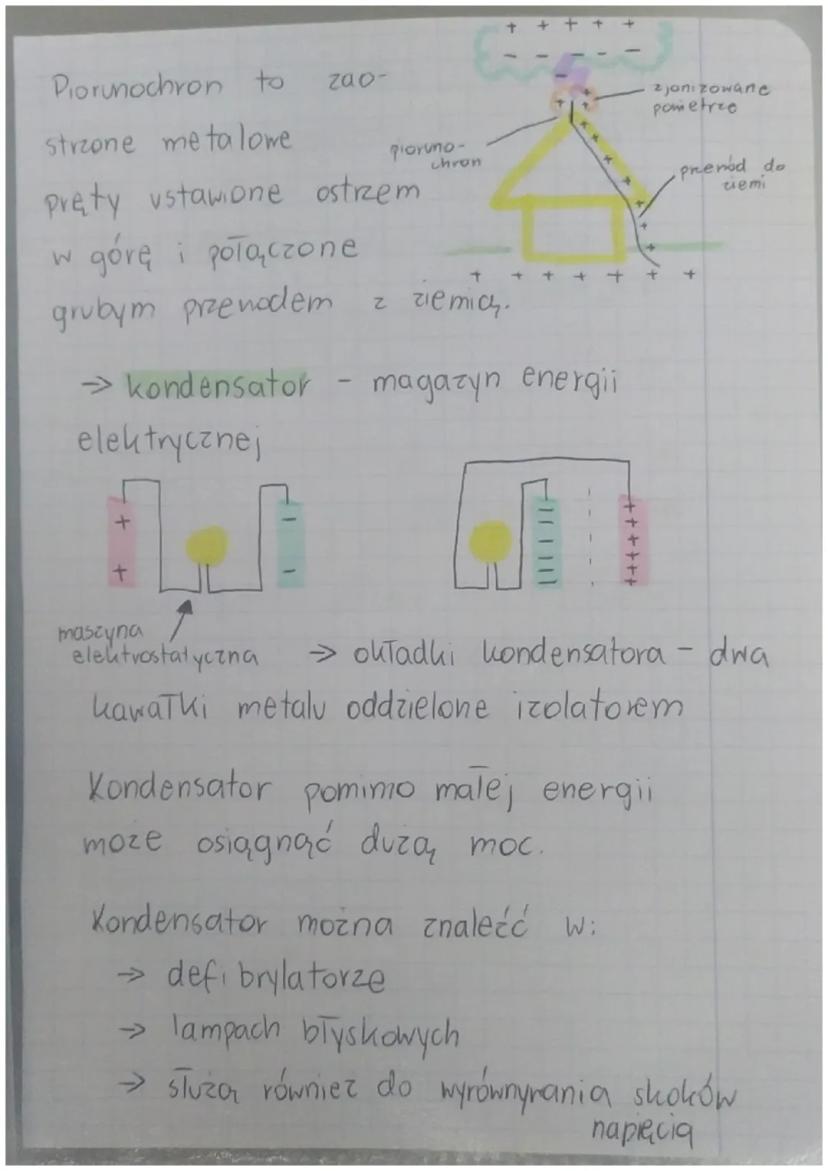 + + + + +
- - - - -
Piorunochron to zao-
strzone metalowe
pręty ustawione ostrzem
w górę i połączone
grubym przewodem z ziemią.
zjonizowane
powietrze
pioruno-
chron
przewód do
ziemi
+ + + + + + +
→ kondensator - magazyn energii
elektrycznej
maszyna
elektrostatyczna
→ okładki kondensatora - dwa
kawałki metalu oddzielone izolatorem
Kondensator pomimo małej energii
może osiągnąć dużą moc.
Kondensator można znaleźć w:
→ defibrylatorze
→ lampach błyskowych
→ służą również do wyrównywania skoków
napięcia